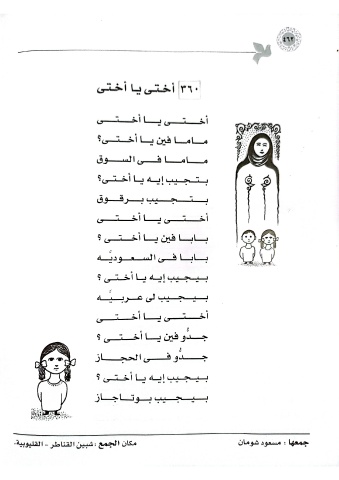 ٤٦٢
٣٦٠ أختى يا أختى
أختى يا أختى
ماما فين يا أختى؟
ماما فى السوق
بتجيب إيه يا أختى؟
بتجيب برقوق
أختى يا أختى
بابا فين يا أختى ؟
بابا فى السعوديَّه
بيجيب إيه يا أختى ؟
بيجيب لى عربيَّه
أختى يا أختى
جدُّو فين يا أختى ؟
جدُّو فى الحجاز
بيجيب إيه يا أختى ؟
بيجيب بوتاجاز
جمعها : مسعود شومان
مكان الجمع : شبين القناطر - القليوبية-